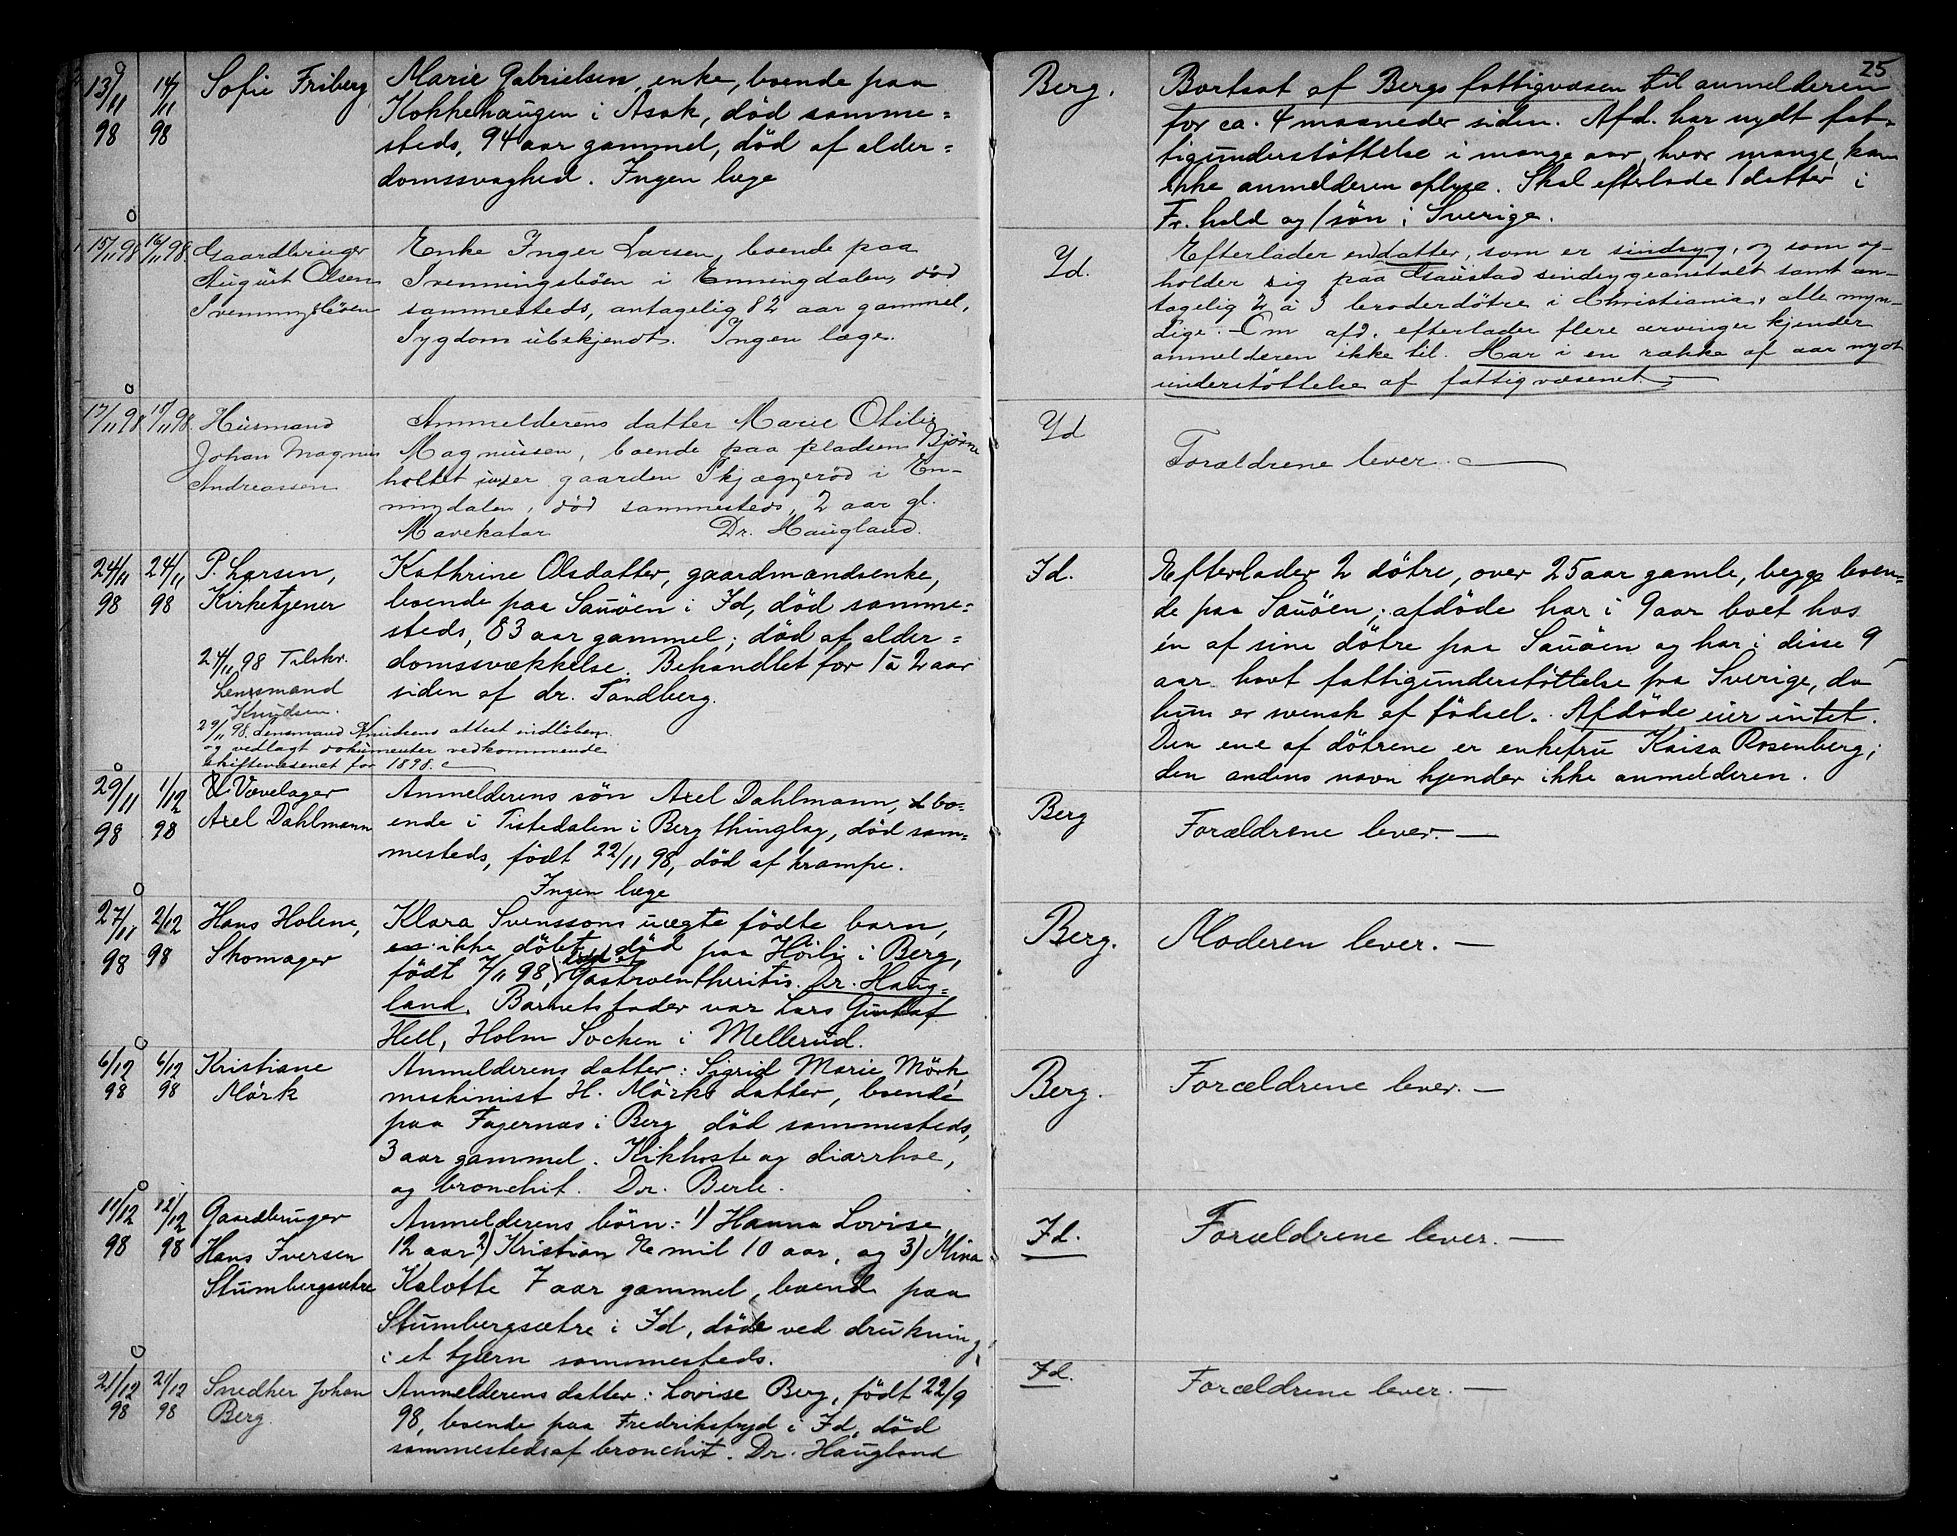 25
13/11 98 14/11 98 Sofie Friberg
Marie Gabrielsen, enke, boende paa
Kokkehaugen i Asak, död samme=
steds, 94 aar gammel, död af alder=
domssvaghed. Ingen læge
Berg.
Bortsat af Bergs fattigvæsen til anmelderen
for ca. 4 maaneder siden. Afd. har nydt fat-
tigunderstöttelse i mange aar, hvor mange, kan
ikke anmelderen oplyse. Skal efterlade 1 datter i
Fr.hald og 1 sön i Sverige.
15/11 98 16/11 98 Gaardbruger
August Olsen
Svenningsböen
Enke Inger Larsen, boende paa
Svenningsböen i Enningdalen, död
sammesteds, antagelig 82 aar gammel,
Sygdom ubekjendt. Ingen læge.
Id.
Efterlader en datter, som er sindsyg, og som op-
holder sig paa Gaustad sindsygeanstalt samt an-
tagelig 2 à 3 broderdötre i Christiania, alle myn-
dige. Om afd. efterlader flere arvinger kjender
anmelderen ikke til. Har i en række af aar nydt
understöttelse af fattigvæsenet. —
17/11 98 17/11 98 Husmand
Johan Magnus
Andreassen
Anmelderens datter Marie Otilie
Magnussen, boende paa pladsen Björne
holtet under gaarden Skjæggeröd i En-
ningdalen, död sammesteds, 2 aar gl.
Mavekatar Dr. Haugland.
Id
Forældrene lever. —
24/11 98 24/11 98 P. Larsen,
Kirketjener
24/11 98 Tilskr.
Lensmand
Knudsen.
29/11 98. Lensmand Knudsens attest indlöben
og vedlagt dokumenter vedkommende
skiftevæsenet for 1898. —
Kathrine Olsdatter, gaardmandsenke,
boende paa Sauöen i Id, död samme=
steds, 83 aar gammel; död af alder=
domssvækkelse. Behandlet for 1 à 2 aar
siden af dr. Sandberg.
Id.
Efterlader 2 dötre, over 25 aar gamle, begge boen=
de paa Sauöen; afdöde har i 9 aar boet hos
én af sine dötre paa Sauöen og har i disse 9
aar havt fattigunderstöttelse fra Sverige, da
hun er svensk af födsel. Afdöde eier intet.
Den ene af dötrene er enkefru Kaisa Rosenberg;
den andens navn kjender ikke anmelderen.
29/11 98 1/12 98 Vævelager
Axel Dahlmann
Anmelderens sön Axel Dahlmann, bo=
ende i Tistedalen i Berg thinglag, död sam=
mesteds, födt 22/11 98, död af krampe.
Ingen læge
Berg
Forældrene lever. —
27/11 98 2/12 98 Hans Holene,
Skomager
Klara Svenssons uægte födte barn,
ikke döbt, död paa Höilie i Berg,
födt 7/11 98, död af Gastroentheritis. Dr. Haug=
land. Barnets fader var Lars Gustaf
Hell, Holm Socken i Mellerud.
Berg.
Moderen lever. —
6/12 98 6/12 98 Kristiane
Mörk
Anmelderens datter: Sigrid Marie Mörk,
maskinist H. Mörks datter, boende
paa Fajernæs i Berg, död sammesteds,
3 aar gammel. Kikhoste og diarrhoe,
og bronchit. Dr. Berle.
Berg.
Forældrene lever. —
11/12 98 12/12 98 Gaardbruger
Hans Iversen
Stumbergsætre
Anmelderens börn: 1) Hanna Lovise
12 aar 2) Kristian Emil 10 aar, og 3) Mina
Kalotte 7 aar gammel, boende paa
Stumbergsætre i Id, döde ved drukning
i et tjern sammesteds.
Id.
Forældrene lever. —
21/12 98 21/12 98 Snedker Johan
Berg.
Anmelderens datter: Lovise Berg, födt 22/9
98, boende paa Fredriksfryd i Id, död
sammesteds af bronchit. Dr. Haugland
Id.
Forældrene lever. —